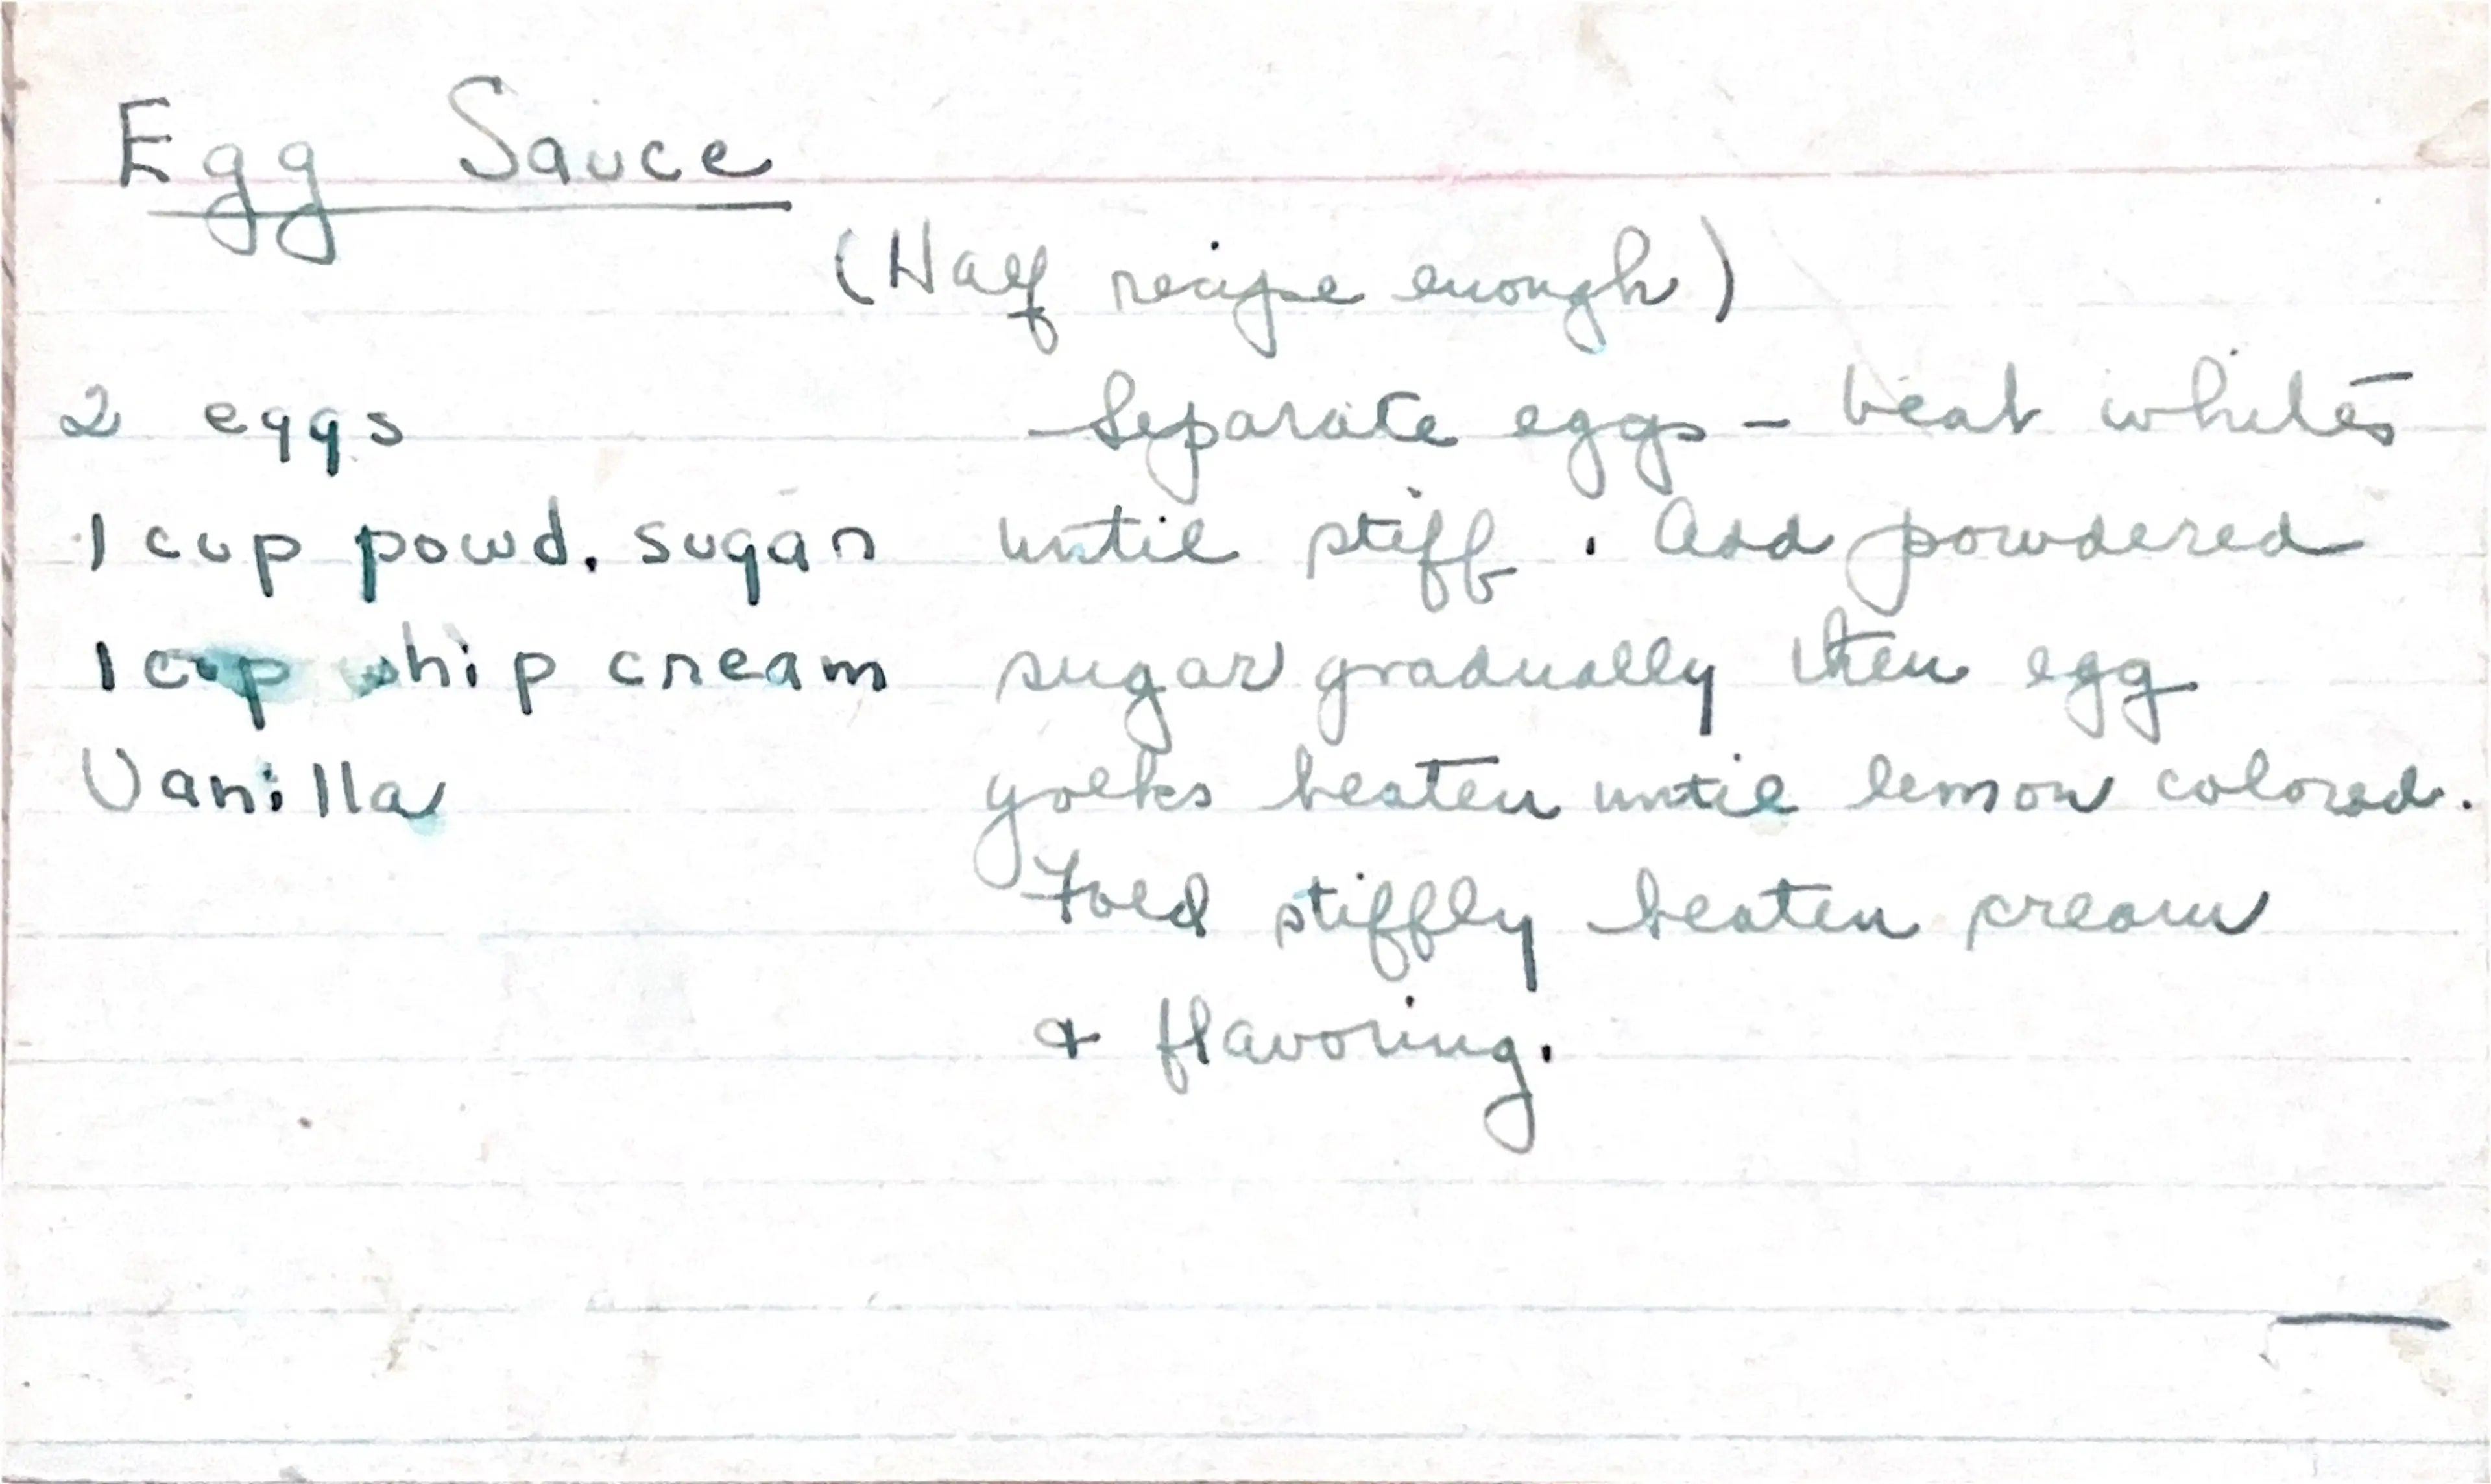 Egg Sauce
(Half recipe enough)
2 eggs
1 cup powd. sugar
1 cup whip cream
Vanilla
Separate eggs - beat whites
until stiff. Add powdered
sugar gradually then egg
yolks beaten until lemon colored.
Fold stiffly beaten cream
& flavoring.